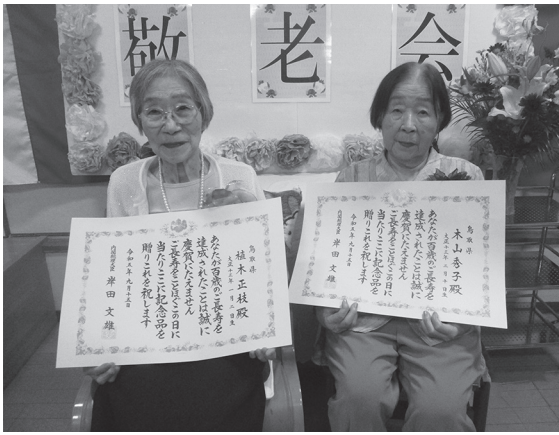 敬老会
鳥取県
植木正枝殿
あなたが百歳のご長寿を
達成されたことは誠に
慶賀にたえません
ご長寿をことほぐこの日に
当たりここに記念品を
贈りこれを祝します
令和五年九月十五日
内閣総理大臣 岸田文雄
鳥取県
木山秀子殿
あなたが百歳のご長寿を
達成されたことは誠に
慶賀にたえません
ご長寿をことほぐこの日に
当たりここに記念品を
贈りこれを祝します
令和五年九月十五日
内閣総理大臣 岸田文雄